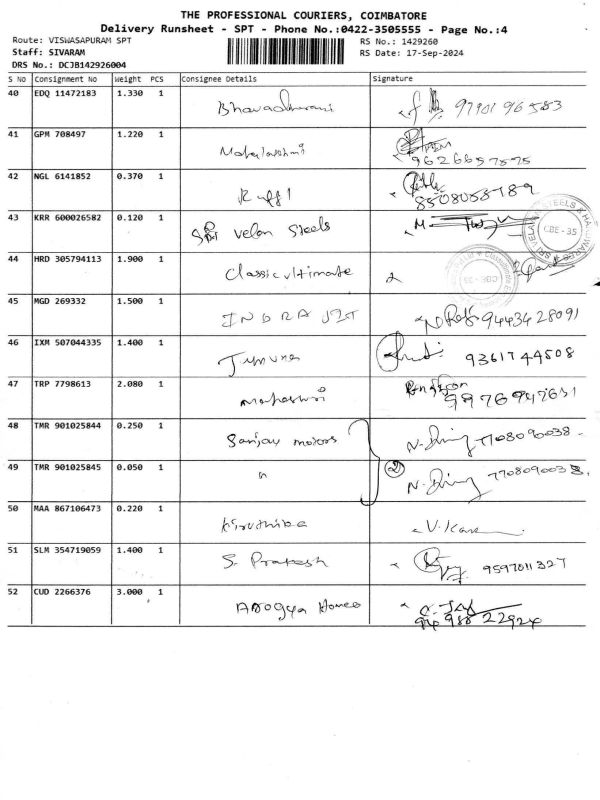 THE PROFESSIONAL COURIERS, COIMBATORE
Delivery Runsheet - SPT - Phone No.:0422-3505555 - Page No.:4
Route: VISWASAPURAM SPT RS No.: 1429260
Staff: SIVARAM RS Date: 17-Sep-2024
DRS No.: DCJB142926004
S No Consignment No Weight PCS Consignee Details Signature
40 EDQ 11472183 1.330 1
97901 96583
41 GPM 708497 1.220 1
Mahalakshmi
9626657575
42 NGL 6141852 0.370 1
8508058789
43 KRR 600026582 0.120 1
Velan Steels
CBE - 35
44 HRD 305794113 1.900 1
Classic ultimate
45 MGD 269332 1.500 1
INDRAJIT 9443428091
46 IXM 507044335 1.400 1
9361744508
47 TRP 7798613 2.080 1
Maheswri
9976947631
48 TMR 901025844 0.250 1
Sanjay motors 7708090038
49 TMR 901025845 0.050 1
" 2 7708090038
50 MAA 867106473 0.220 1
Kiruthika V. Karan
51 SLM 354719059 1.400 1
S. Prakash 9597011327
52 CUD 2266376 3.000 1
Arogya Homeo
94 988 22924